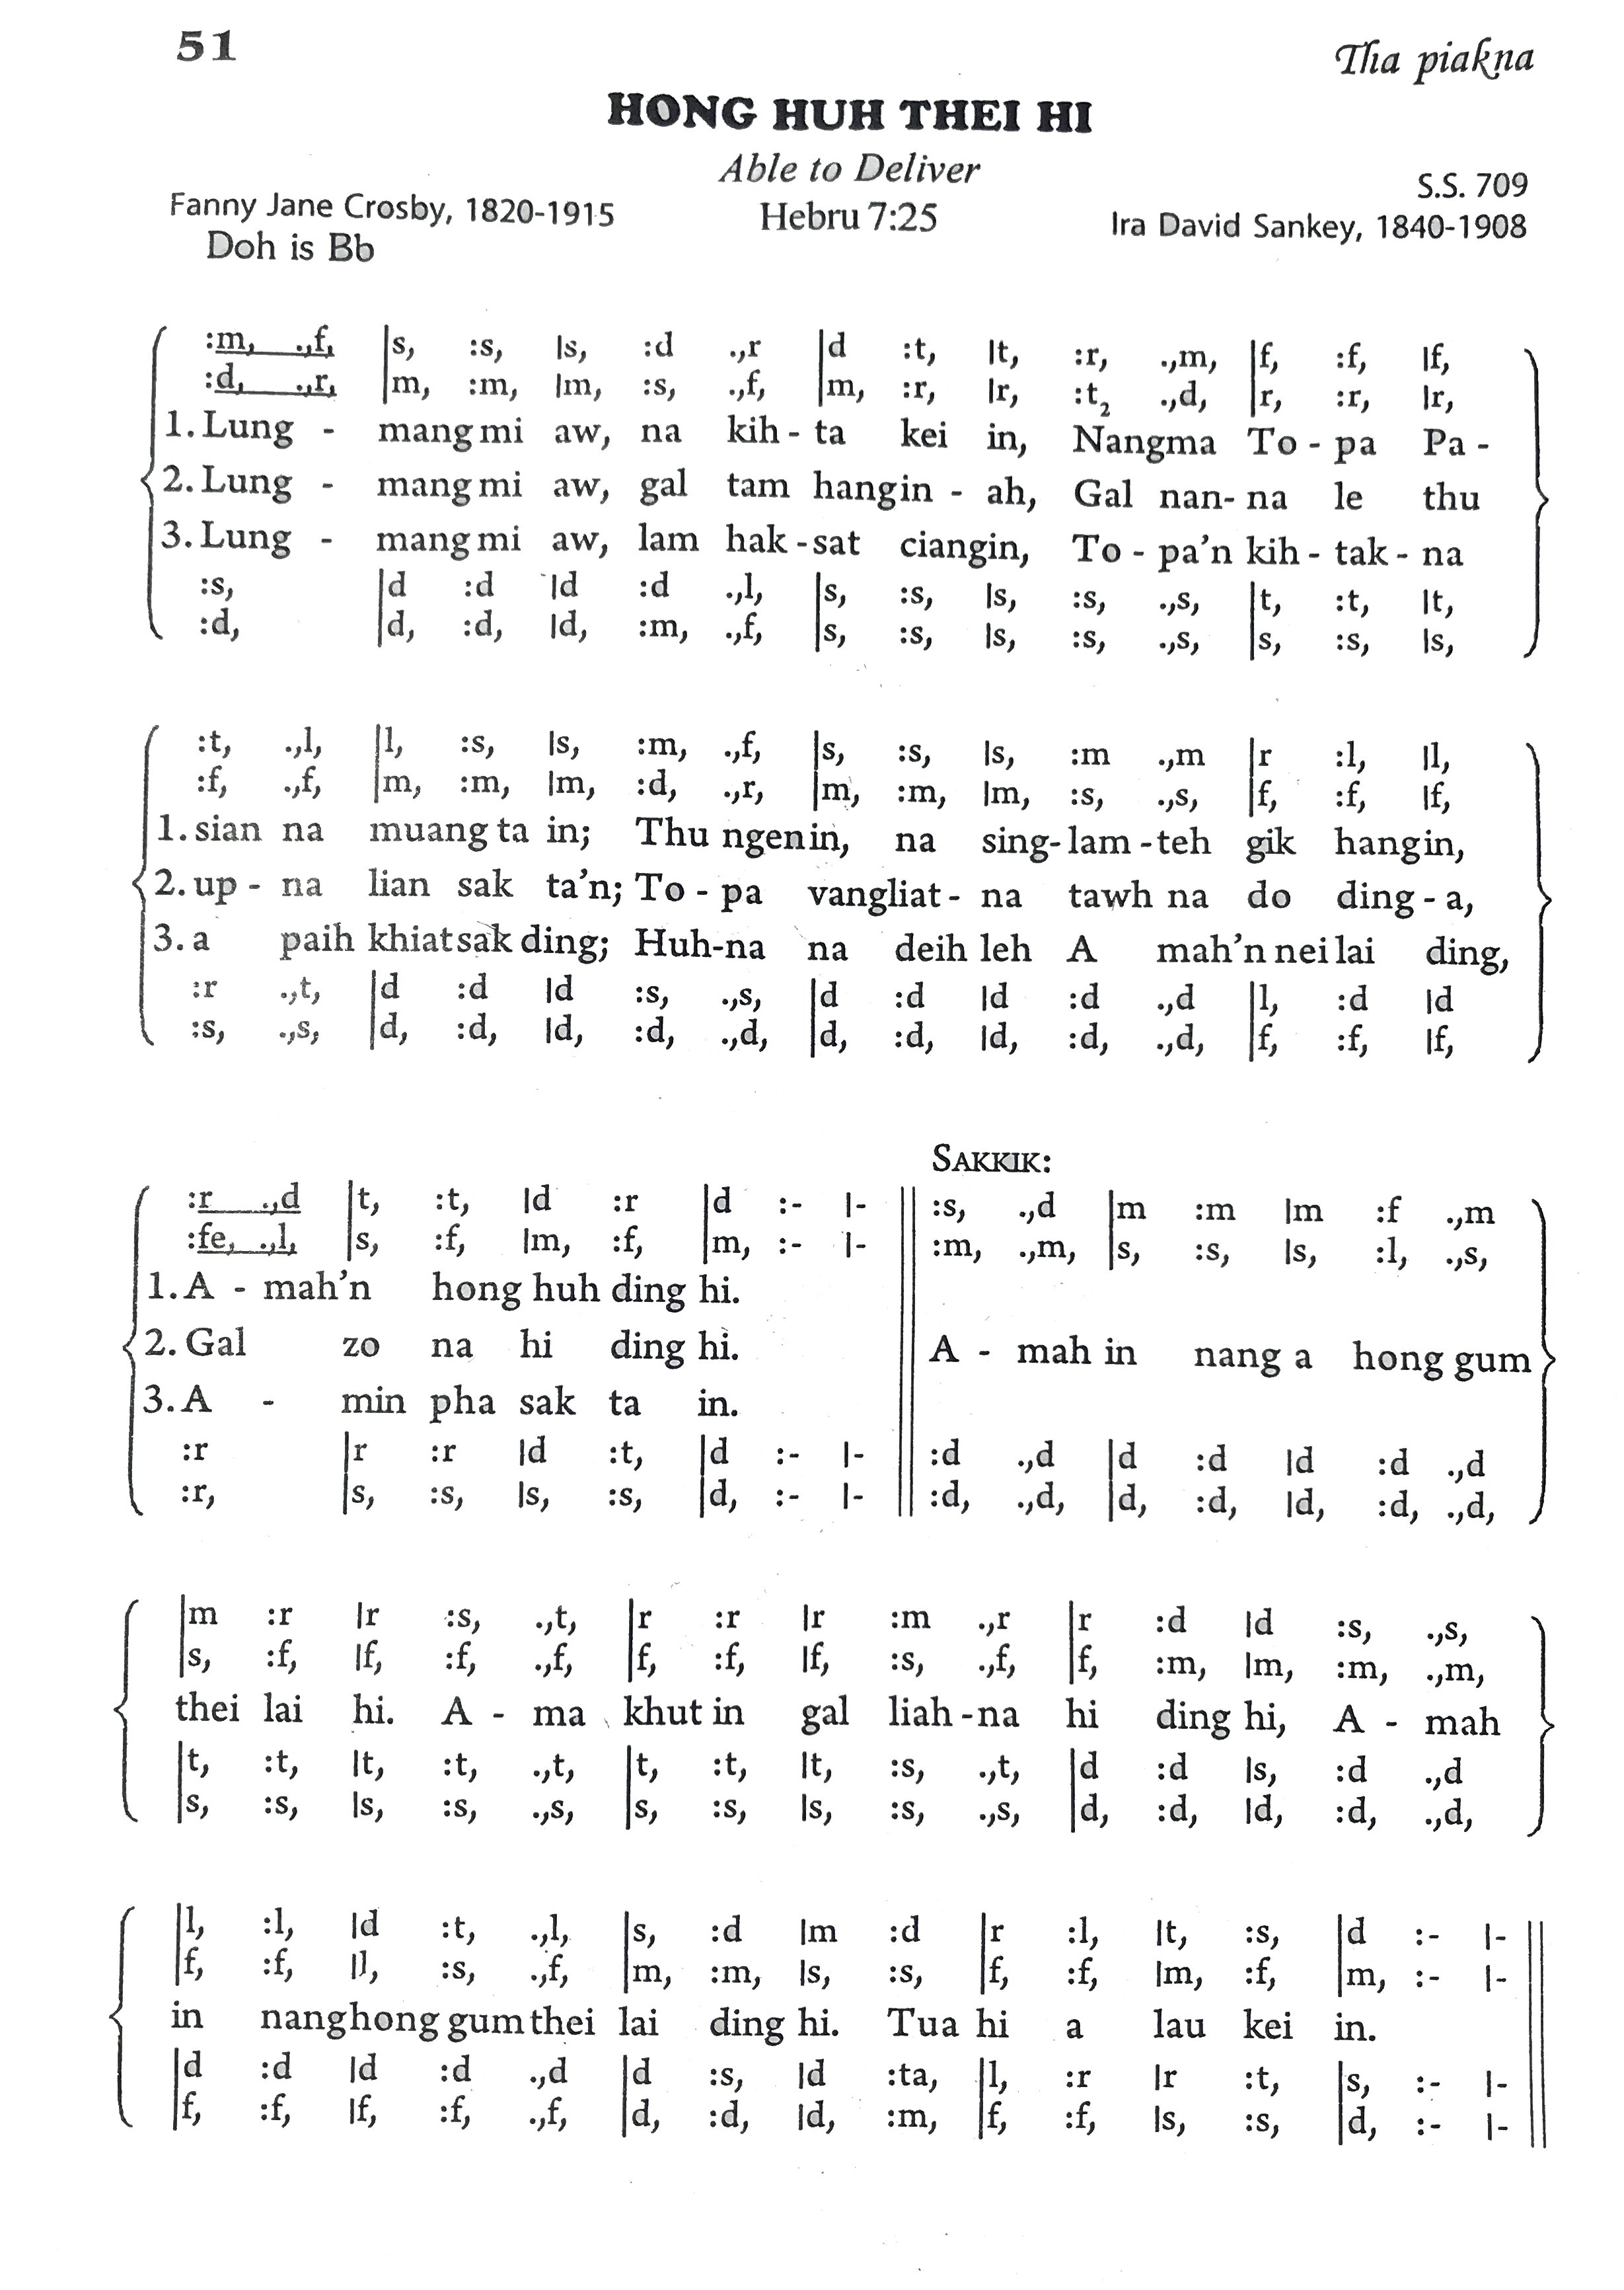 51
Tha piakna
HONG HUH THEI HI
Able to Deliver
S.S. 709
Fanny Jane Crosby, 1820-1915 Hebru 7:25 Ira David Sankey, 1840-1908
Doh is Bb
:m, .,f, |s, :s, |s, :d .,r |d :t, |t, :r, .,m, |f, :f, |f,
:d, .,r, |m, :m, |m, :s, .,f, |m, :r, |r, :t₂ .,d, |r, :r, |r,
1. Lung - mang mi aw, na kih - ta kei in, Nangma To - pa Pa -
2. Lung - mang mi aw, gal tam hangin - ah, Gal nan- na le thu
3. Lung - mang mi aw, lam hak - sat ciangin, To - pa'n kih - tak - na
:s, |d :d |d :d .,l, |s, :s, |s, :s, .,s, |t, :t, |t,
:d, |d, :d, |d, :m, .,f, |s, :s, |s, :s, .,s, |s, :s, |s,
:t, .,l, |l, :s, |s, :m, .,f, |s, :s, |s, :m .,m |r :l, |l,
:f, .,f, |m, :m, |m, :d, .,r, |m, :m, |m, :s, .,s, |f, :f, |f,
1. sian na muang ta in; Thu ngenin, na sing- lam - teh gik hangin,
2. up - na lian sak ta'n; To - pa vangliat - na tawh na do ding - a,
3. a paih khiat sak ding; Huh-na na deih leh A mah'n nei lai ding,
:r .,t, |d :d |d :s, .,s, |d :d |d :d .,d |l, :d |d
:s, .,s, |d, :d, |d, :d, .,d, |d, :d, |d, :d, .,d, |f, :f, |f,
SAKKIK:
:r .,d |t, :t, |d :r |d :- |- || :s, .,d |m :m |m :f .,m
:fe, .,l, |s, :f, |m, :f, |m, :- |- || :m, .,m, |s, :s, |s, :l, .,s,
1. A - mah'n hong huh ding hi.
2. Gal zo na hi ding hi. A - mah in nang a hong gum
3. A - min pha sak ta in.
:r |r :r |d :t, |d :- |- || :d .,d |d :d |d :d .,d
:r, |s, :s, |s, :s, |d, :- |- || :d, .,d, |d, :d, |d, :d, .,d,
|m :r |r :s, .,t, |r :r |r :m .,r |r :d |d :s, .,s,
|s, :f, |f, :f, .,f, |f, :f, |f, :s, .,f, |f, :m, |m, :m, .,m,
thei lai hi. A - ma khut in gal liah - na hi ding hi, A - mah
|t, :t, |t, :t, .,t, |t, :t, |t, :s, .,t, |d :d |s, :d .,d
|s, :s, |s, :s, .,s, |s, :s, |s, :s, .,s, |d, :d, |d, :d, .,d,
|l, :l, |d :t, .,l, |s, :d |m :d |r :l, |t, :s, |d :- |- ||
|f, :f, |l, :s, .,f, |m, :m, |s, :s, |f, :f, |m, :f, |m, :- |- ||
in nang hong gum thei lai ding hi. Tua hi a lau kei in.
|d :d |d :d .,d |d :s, |d :ta, |l, :r |r :t, |s, :- |- ||
|f, :f, |f, :f, .,f, |d, :d, |d, :m, |f, :f, |s, :s, |d, :- |- ||